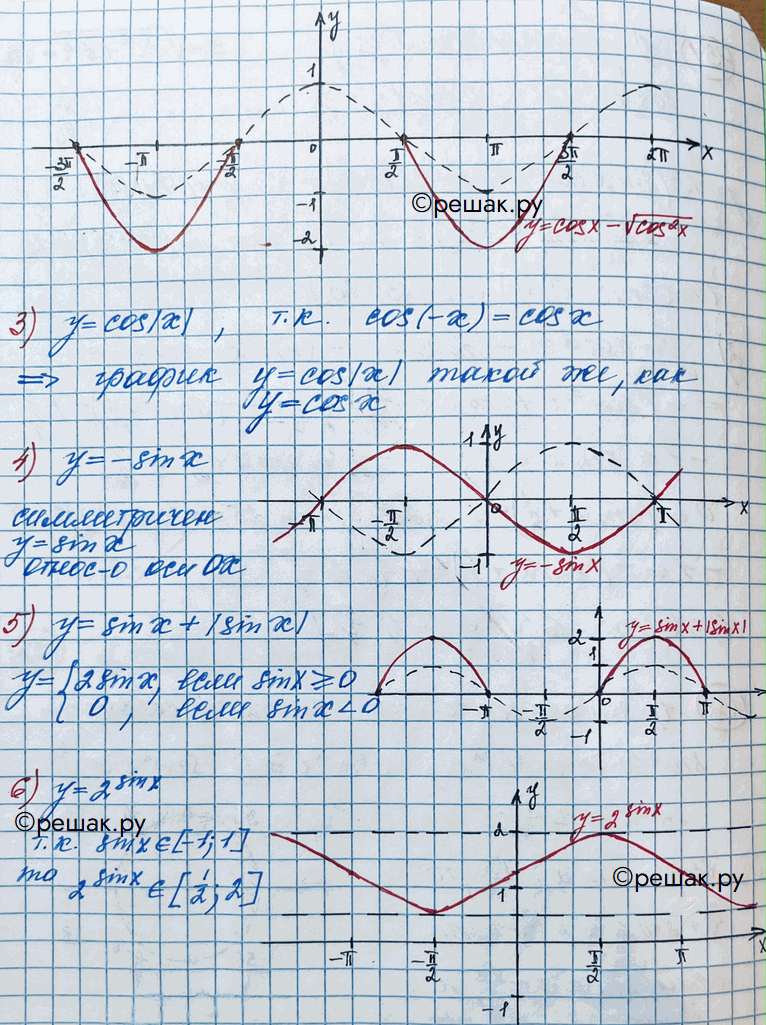 y
1
-3π/2 -π -π/2 0 π/2 π 3π/2 2π x
-1
©решак.ру
-2
y=cosx-√cos²x
3) y=cos|x|, т.к. cos(-x)=cosx
=> график y=cos|x| такой же, как
y=cosx
4) y=-sinx
симметричен
y=sinx
относ-о оси Ox
y
1
-π -π/2 0 π/2 π x
-1
y=-sinx
5) y=sinx+|sinx|
y={2sinx, если sinx≥0
0, если sinx<0
y=sinx+|sinx|
2
1
-π -π/2 0 π/2 π
-1
6) y=2^sinx
©решак.ру
т.к. sinx∈[-1;1]
то 2^sinx∈[1/2;2]
y
y=2^sinx
2
©решак.ру
1
-π -π/2 π/2 π x
-1